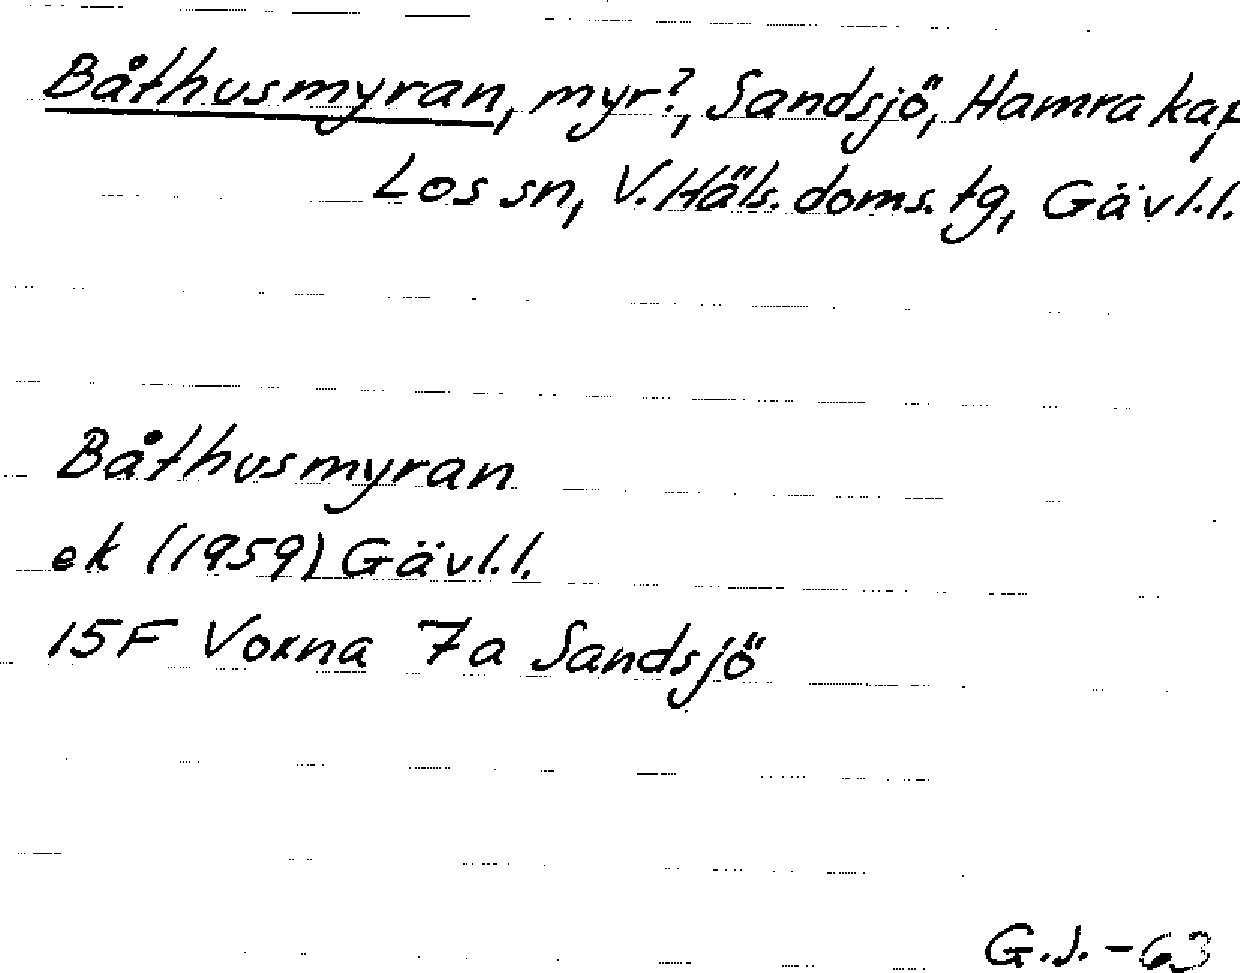 Båthusmyran, myr?, Sandsjö, Hamra kap,
Los sn, V. Häls. doms. tg, Gävl.l.
Båthusmyran
ek (1959) Gävl.l.
15F Voxna 7a Sandsjö
G.J. - 63